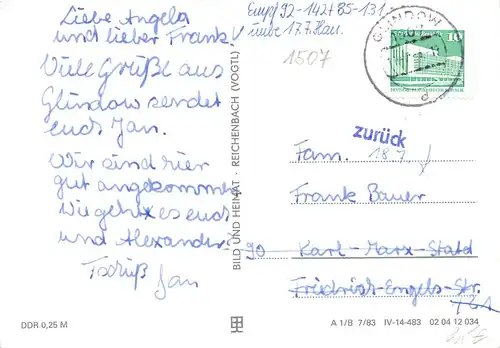 Liebe Angela
und lieber Frank!
Viele Grüße aus
Glindow sendet
euch Jan.
Wir sind hier
gut angekommen
Wie geht es euch
und Alexander?
Tschüß Jan
92-142 + 85-131
17.7.
1507
GLINDOW
10
zurück
18 7.
Fam.
Frank Bauer
90 Karl-Marx-Stadt
Friedrich-Engels-Str.
BILD UND HEIMAT · REICHENBACH (VOGTL)
DDR 0,25 M
A 1/B 7/83 IV-14-483 02 04 12 034